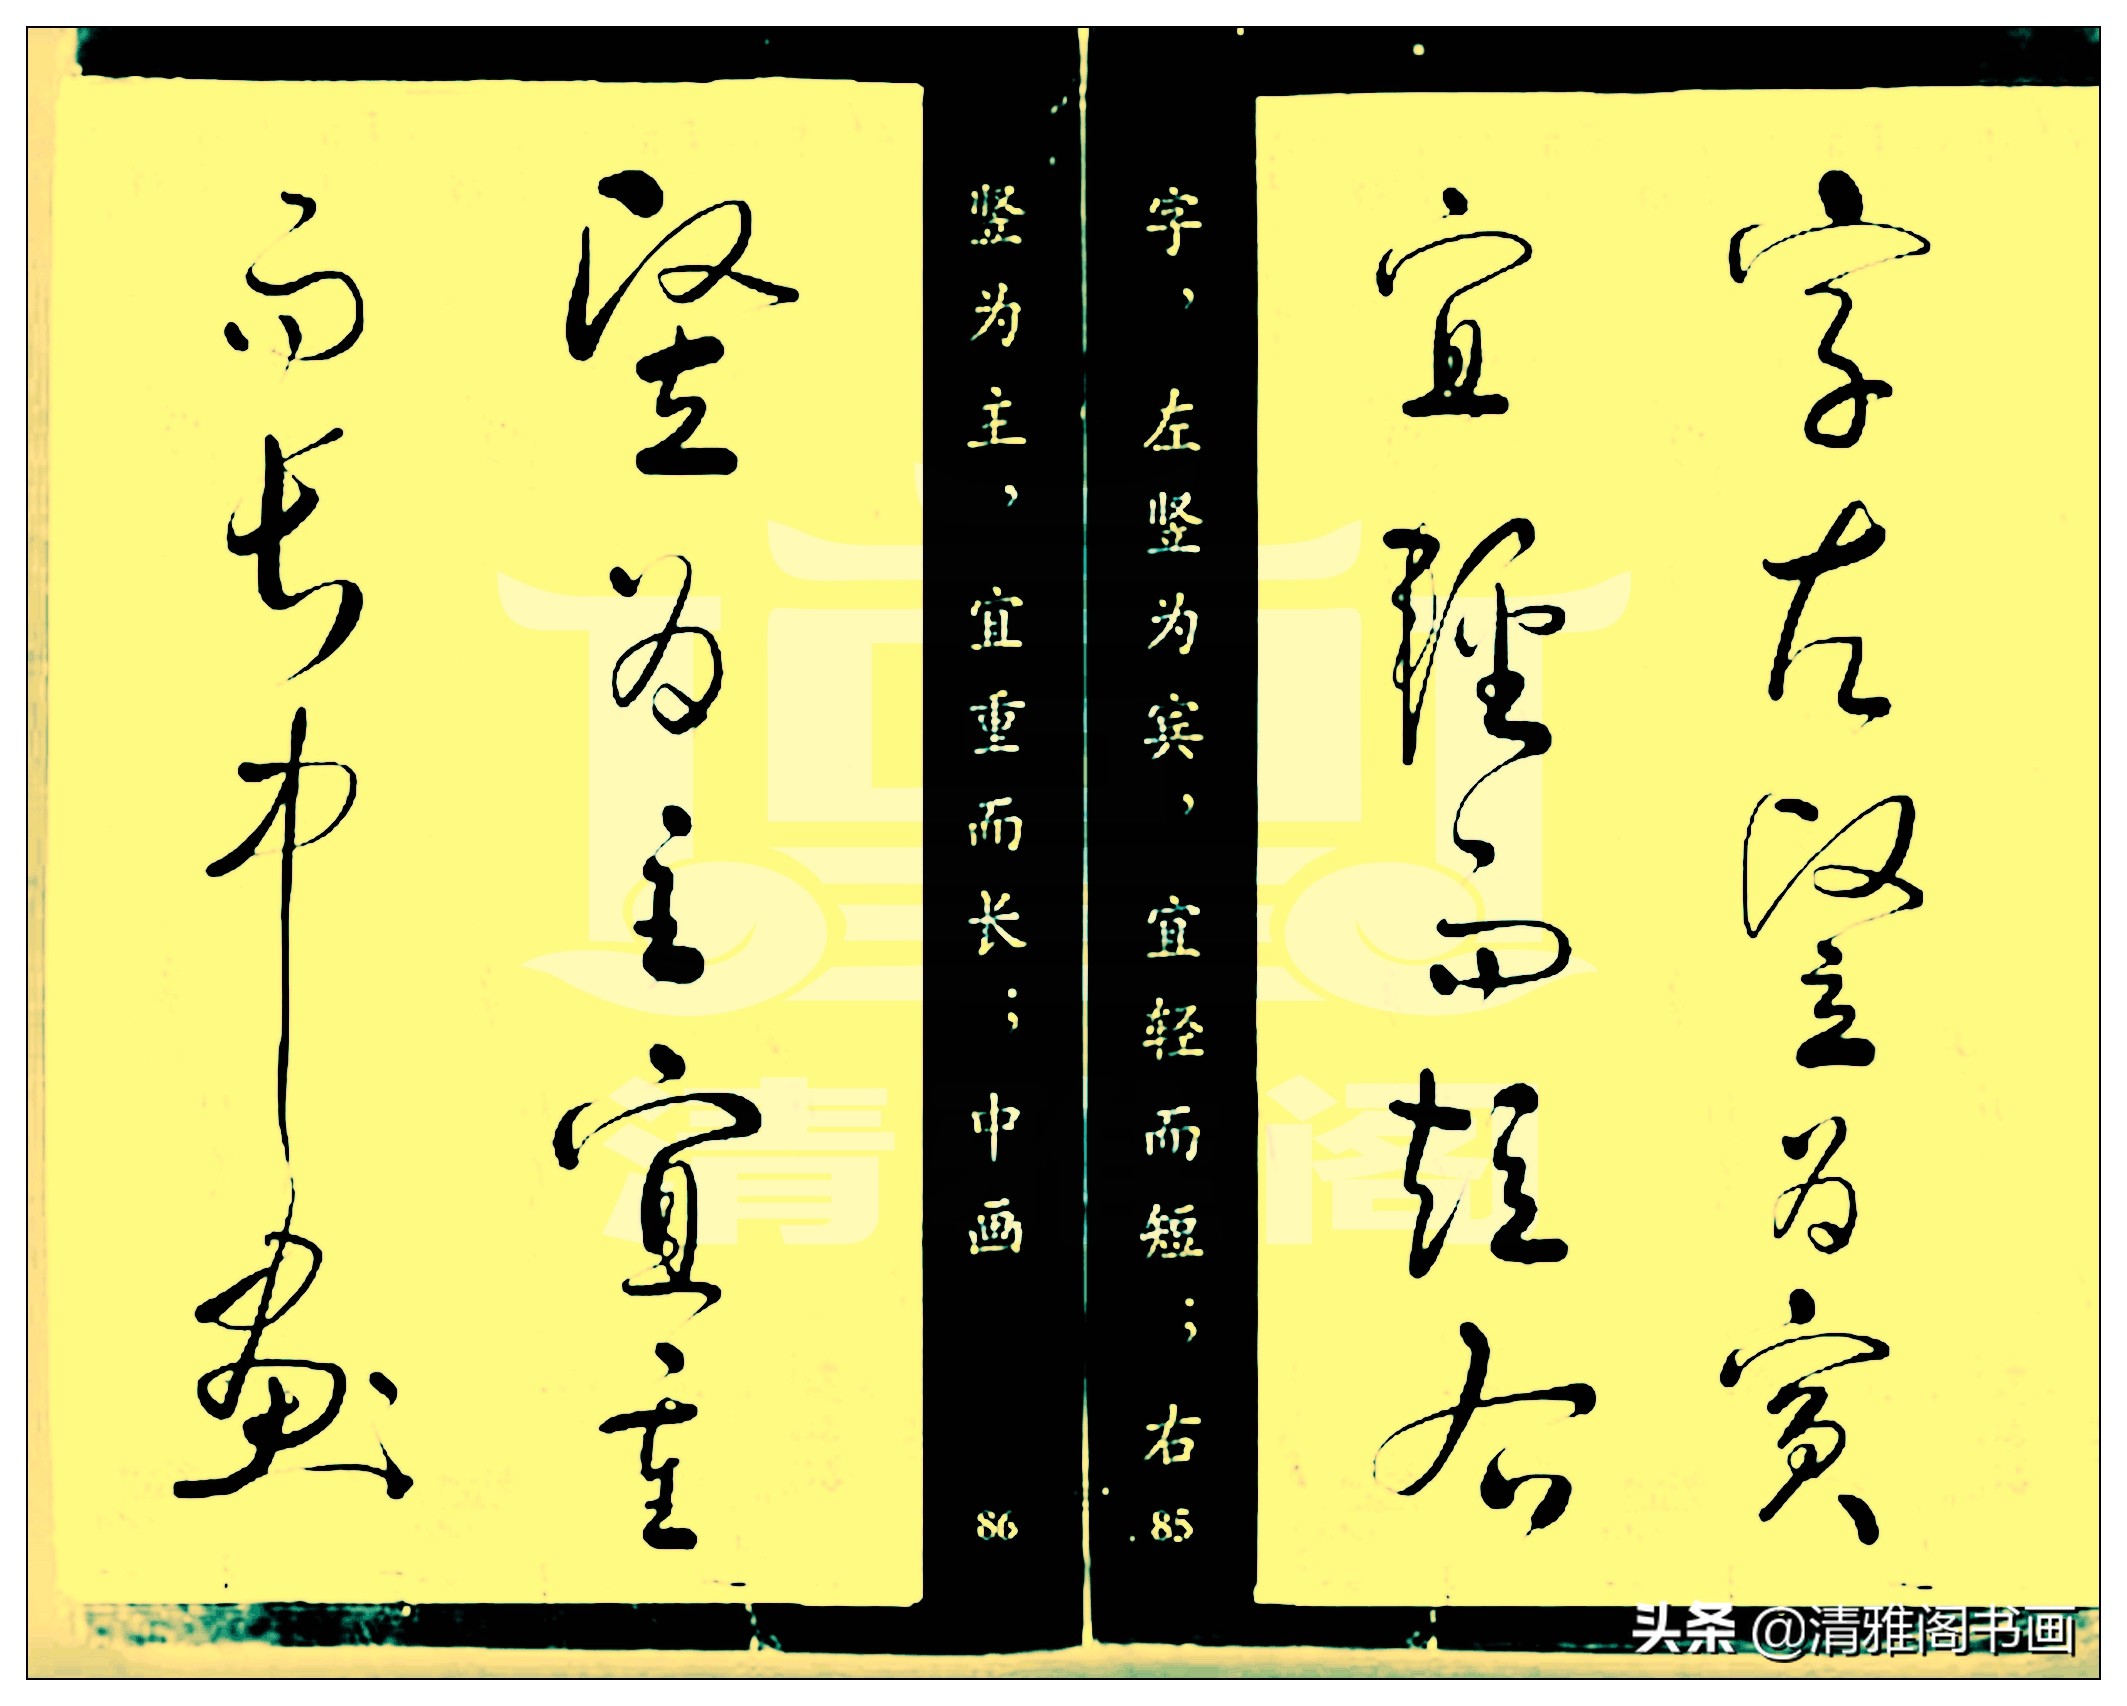 字左竖为宾
宜轻而短右
字，左竖为宾，宜轻而短；右
85
竖为主，宜重而长；中画
86
竖为主宜重
而长中画
清 阁
头条 @清雅阁书画